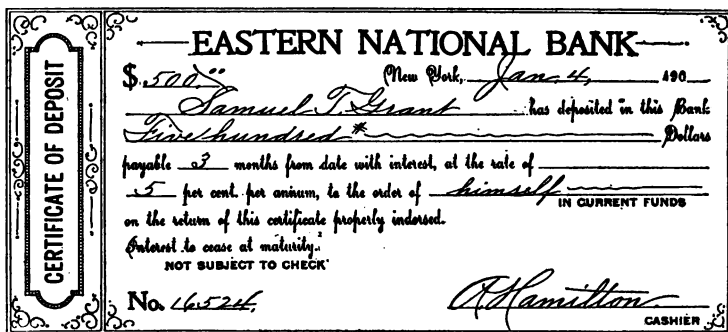 CERTIFICATE OF DEPOSIT
EASTERN NATIONAL BANK
$ 500.00 New York, Jan. 4, 190
Samuel T. Grant has deposited in this Bank
Five hundred * Dollars
payable 3 months from date with interest, at the rate of
5 per cent. per annum, to the order of himself
IN CURRENT FUNDS
on the return of this certificate properly indorsed.
Interest to cease at maturity.
NOT SUBJECT TO CHECK
No. 16524. A Hamilton
CASHIER